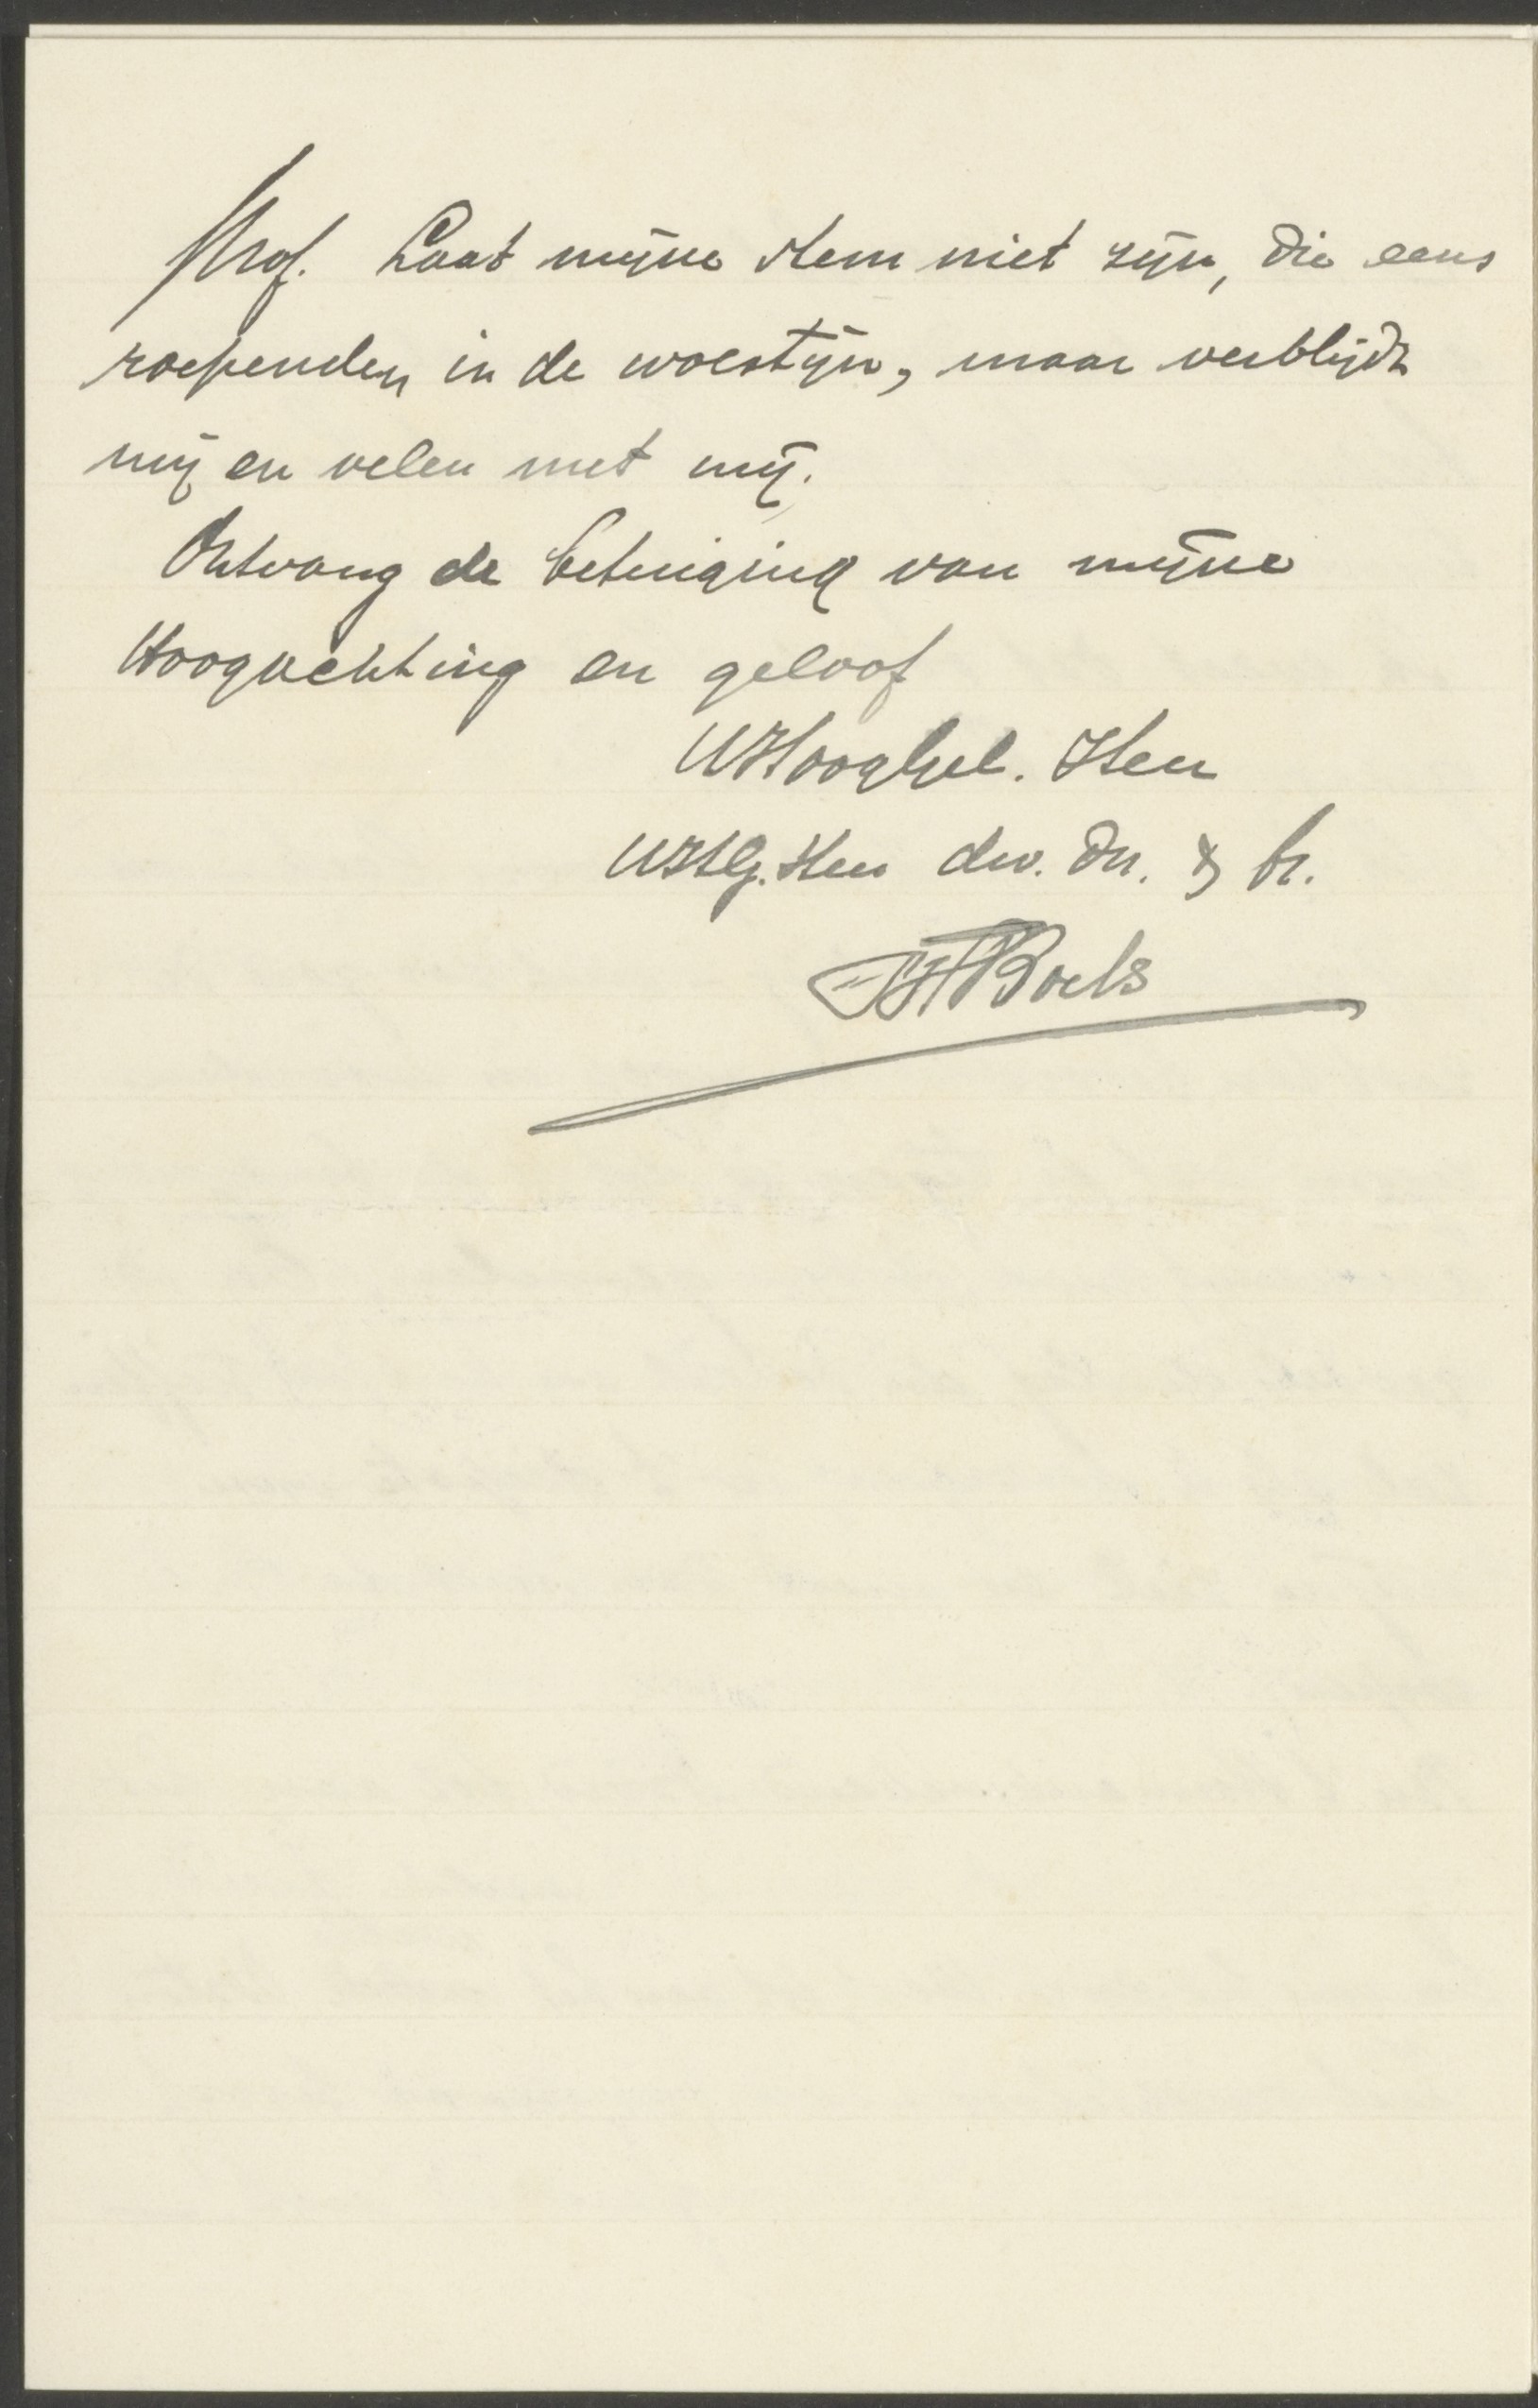 Prof. Laat mijne stem niet zijn, die eens
roependen in de woestijn, maar verblijdt
mij en velen met mij.
Ontvang de betuiging van mijne
Hoogachting en geloof
UHooghgel. Heer
UHG. Heer dw. dn. & br.
Boels